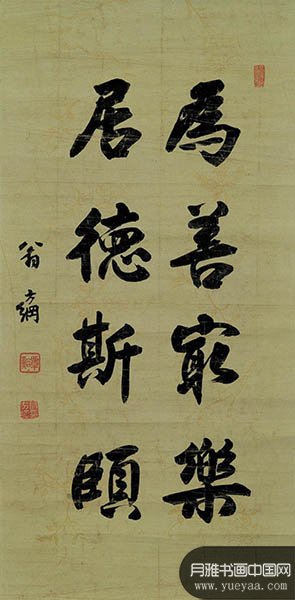 為善最樂
居德斯頤
翁方綱
月雅书画中国网
www.yueyaa.com